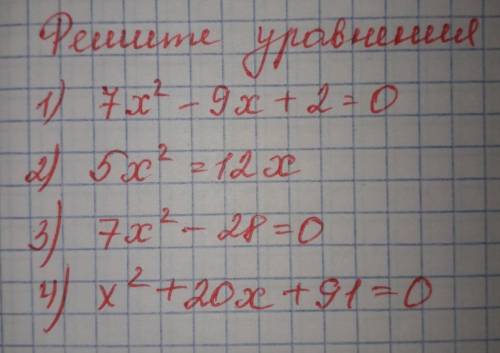 Решите уравнения
1) 7x² - 9x + 2 = 0
2) 5x² = 12x
3) 7x² - 28 = 0
4) x² + 20x + 91 = 0